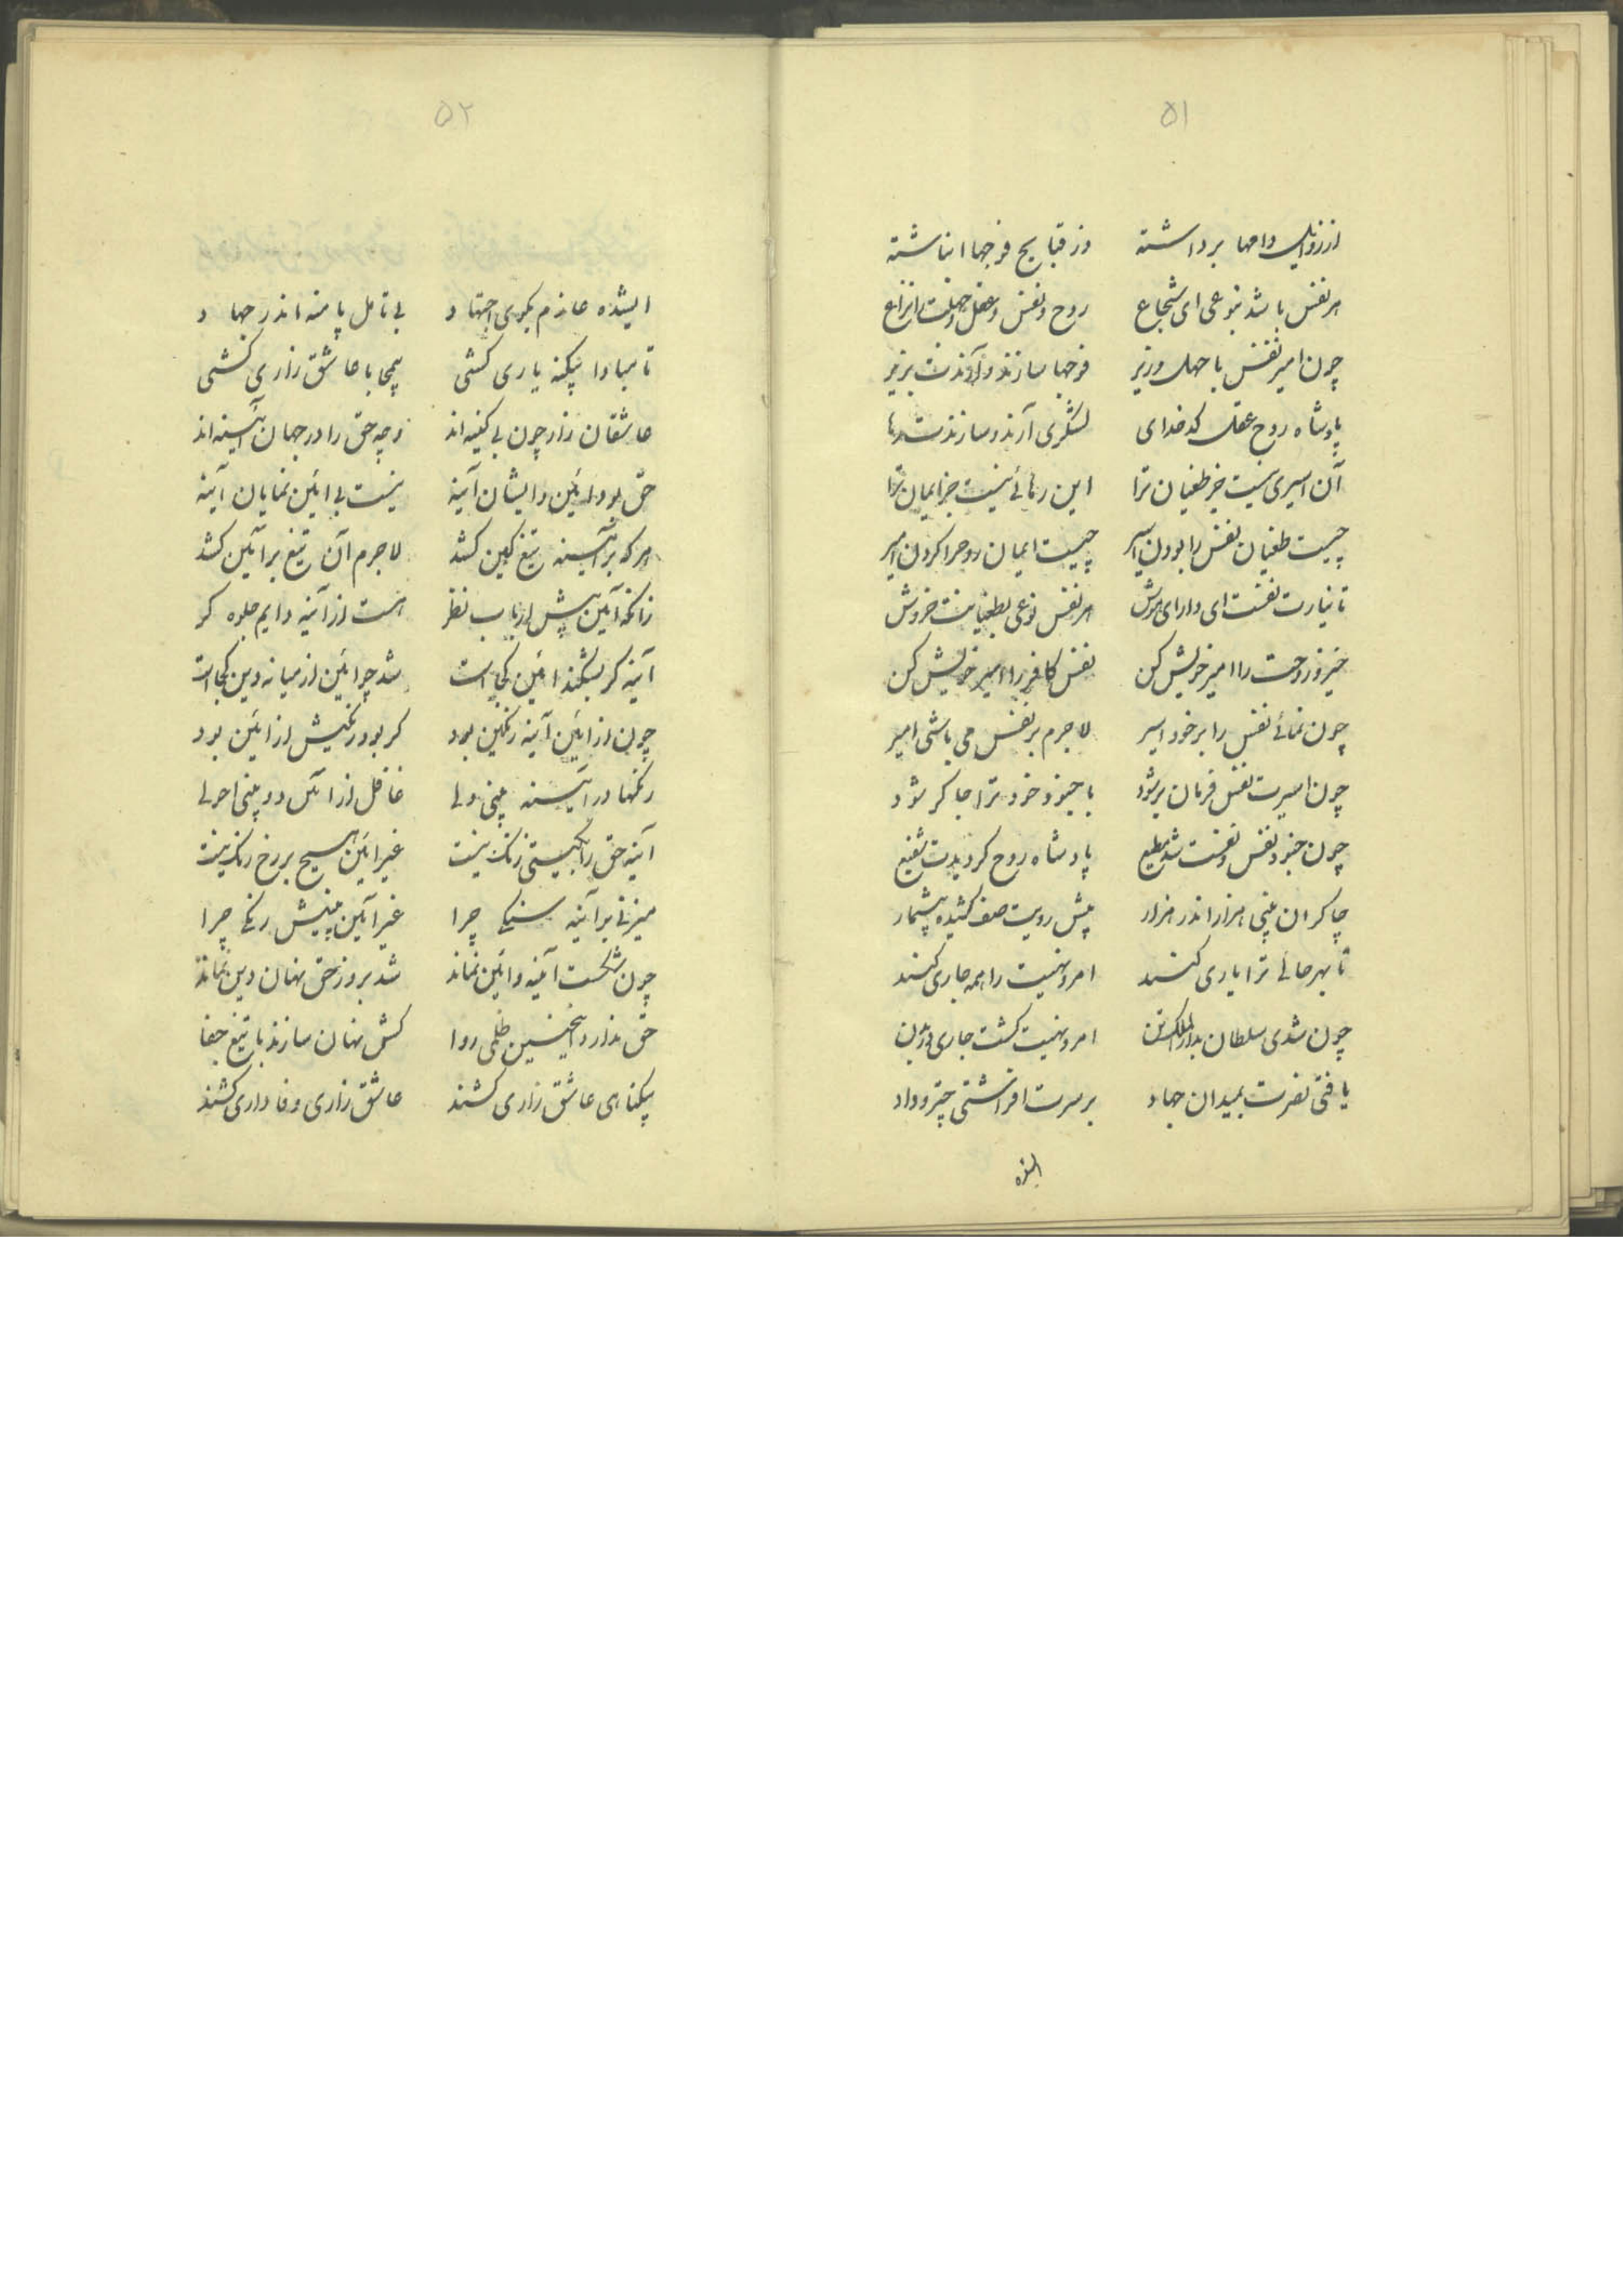 ۵۱
از رذایل دامها برداشته وز قبایح فوجها انباشته
هر نفس باشد بنوعی ای شجاع روح و نفس و عقل و جهلت را نزاع
چون امیر نفس با جهل وزیر فوجها سازند و آرندت بزیر
پادشاه روح عقل کدخدای لشکری آرند و سازندت رها
آن اسیری نیست جز طغیان ترا این رهائی نیست جز ایمان ترا
چیست طغیان نفس را بودن اسیر چیست ایمان روحرا کردن امیر
تا نیارت نفست ای دارای هوش هر نفس نوعی بطغیانت خروش
خیز و روحت را امیر خویش کن نفس کافر را اسیر خویش کن
چون نمائی نفس را بر خود اسیر لاجرم بر نفس می باشی امیر
چون اسیرت نفس فرمان بر شود با جنود خود ترا چاکر شود
چون جنود نفس و نفست شد مطیع پادشاه روح کردیدت شفیع
چاکران بینی هزار اندر هزار پیش رویت صف کشیده بیشمار
تا بهر جائی ترا یاری کنند امر و نهیت را همه جاری کنند
چون شدی سلطان بدار الملک تن امر و نهیت کشت جاری در زمن
یافتی نصرت بمیدان جهاد بر سرت افراشتی چتر و داد
۵۲
ایشده عازم بکوی اجتهاد بی تامل پا منه اندر جهاد
تا مبادا بیکنه یاری کشی بیمحابا عاشق زاری کشی
عاشقان زار چون بی کینه اند وجه حق را در جهان آئینه اند
حق بود آئین و ایشان آینه نیست بی ائین نمایان آینه
هر که بر آئینه تیغ کین کشد لاجرم آن تیغ بر آئین کشد
زانکه آئین پیش ارباب نظر هست از آینه دایم جلوه کر
آینه کر بشکند ائین کجاست شد چو ائین از میانه دین کجاست
چون از ائین آینه رنکین بود کر بود رنکیش از ائین بود
رنکها در آئینه بینی ولی غافل از آئین دو بینی احولی
آینه حق را بکیتی رنک نیست غیر ائین هیچ بر رخ رنک نیست
میزنی بر آینه سنکی چرا غیر آئین بینیش رنکی چرا
چون شکست آینه و ائین نماند شد بروز حق نهان دین نماند
حق ندارد اینچنین ظلمی روا کش نهان سازند با تیغ جفا
بیکناهی عاشق زاری کشند عاشق زاری وفاداری کشند